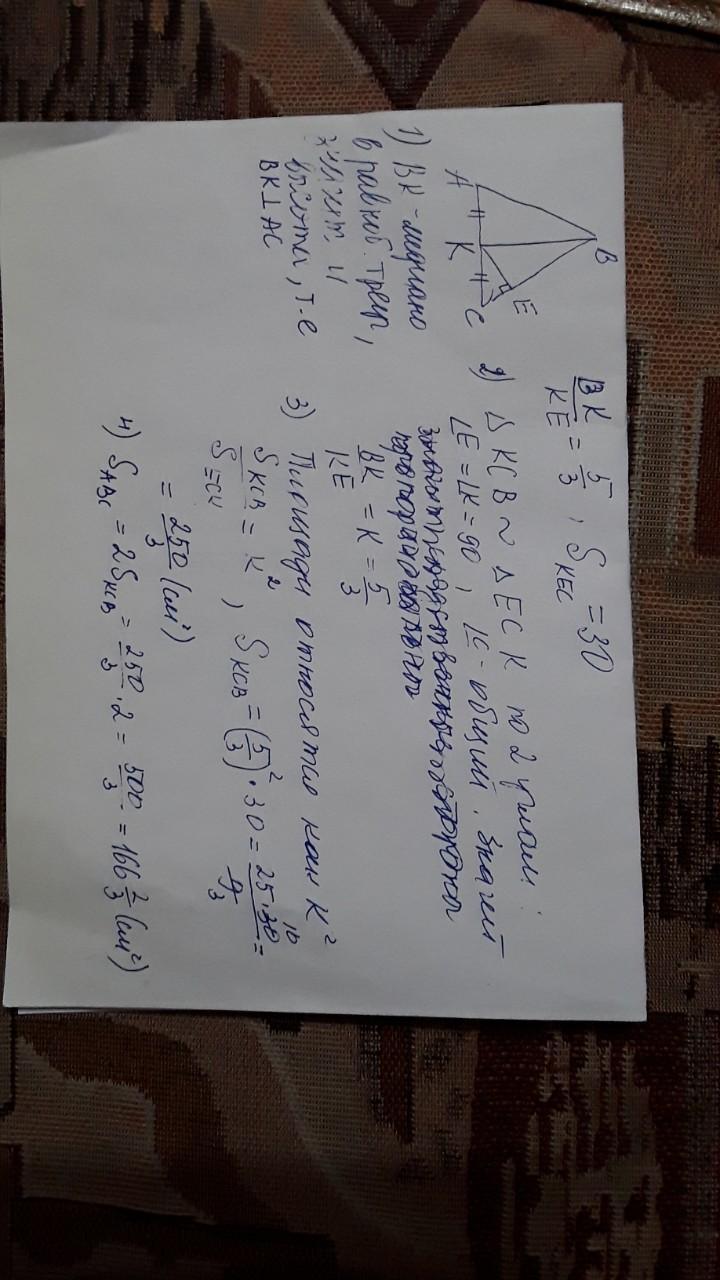 B
A
K
C
E
BK/KE = 5/3 , S KEC = 30
1) BK - медиана
в равноб. треуг,
и
высота, т-е
BK ⊥ AC
2) △ KCB ~ △ ECK по 2 углам:
∠E = ∠K = 90, ∠C - общий. Значит
BK/KE = K = 5/3
3) Площади относятся как K²
S KCB/S ECK = K² , S KCB = (5/3)² · 30 = 25·30/9 =
10
3
= 250/3 (см²)
4) S ABC = 2S KCB = 250/3 · 2 = 500/3 = 166 2/3 (см²)